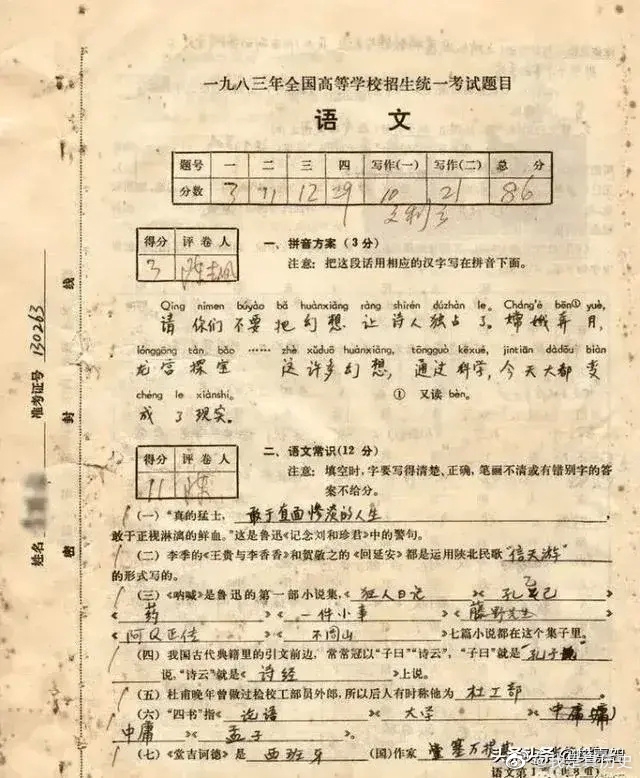 一九八三年全国高等学校招生统一考试题目
语文
题号 一 二 三 四 写作(一) 写作(二) 总分
分数 3 11 12 29 10 21 86
得分 评卷人
3
一、拼音方案(3分)
注意:把这段话用相应的汉字写在拼音下面。
Qǐng nǐmen búyào bǎ huànxiǎng ràng shīrén dúzhàn le. Cháng'é bēn① yuè,
请 你们 不要 把 幻想 让 诗人 独占 了。嫦娥 奔 月,
lónggōng tàn bǎo …… zhè xǔduō huànxiǎng, tōngguò kēxué, jīntiān dàdōu biàn
龙宫 探 宝 这 许多 幻想, 通过 科学, 今天 大都 变
chéng le xiànshí. ① 又读 bèn。
成 了 现实。
得分 评卷人
11
二、语文常识(12分)
注意:填空时,字要写得清楚、正确,笔画不清或有错别字的答
案不给分。
(一)“真的猛士,敢于直面惨淡的人生,
敢于正视淋漓的鲜血。”这是鲁迅《记念刘和珍君》中的警句。
(二)李季的《王贵与李香香》和贺敬之的《回延安》都是运用陕北民歌“信天游”
的形式写的。
(三)《呐喊》是鲁迅的第一部小说集,《狂人日记》《孔乙己》
《药》《一件小事》《藤野先生》
《阿Q正传》《不周山》七篇小说都在这个集子里。
(四)我国古代典籍里的引文前边,常常冠以“子曰”“诗云”,“子曰”就是孔子
说,“诗云”就是《诗经》上说。
(五)杜甫晚年曾做过检校工部员外郎,所以后人有时称他为 杜工部。
(六)“四书”指《论语》《大学》《中庸
中庸》《孟子》。
(七)《堂吉诃德》是 西班牙 (国)作家 塞万提斯
语文第1页(共8页)
姓名 准考证号 130263
密 封 线